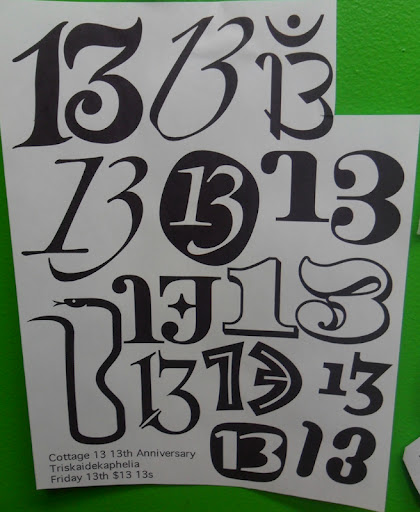 13 13 13
13 13 13
13 13
13 13 13
13 13
Cottage 13 13th Anniversary
Triskaidekaphelia
Friday 13th $13 13s